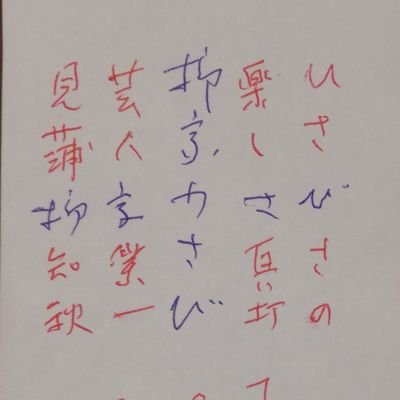 ひさびさの
楽しさ真打
柳家わさび
芸人家業一
見蒲柳知秋